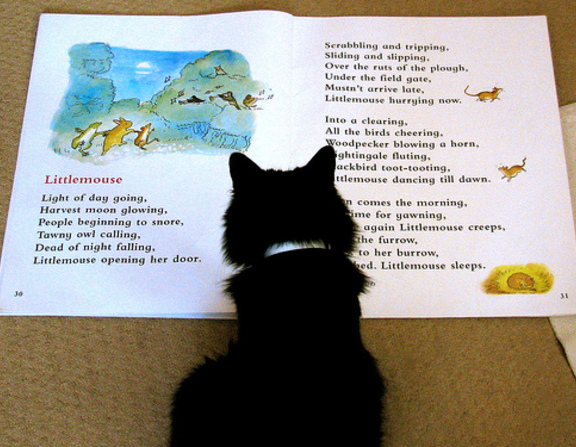 Littlemouse
Light of day going,
Harvest moon glowing,
People beginning to snore,
Tawny owl calling,
Dead of night falling,
Littlemouse opening her door.
30
Scrabbling and tripping,
Sliding and slipping,
Over the ruts of the plough,
Under the field gate,
Mustn't arrive late,
Littlemouse hurrying now.
Into a clearing,
All the birds cheering,
Woodpecker blowing a horn,
Nightingale fluting,
Blackbird toot-tooting,
Littlemouse dancing till dawn.
comes the morning,
for yawning,
again Littlemouse creeps,
the furrow,
to her burrow,
bed. Littlemouse sleeps.
31